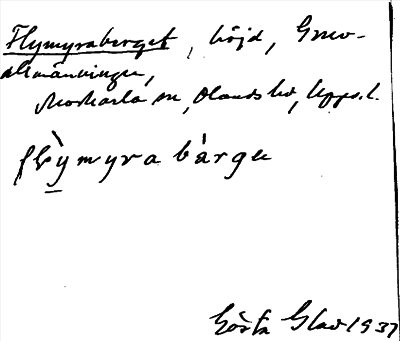 Flymyraberget, höjd, Gruv-
allmänningen,
Morkarla sn, Olands hd, Upps. l.
flỳmyra bàrge
Gösta Glad 1937